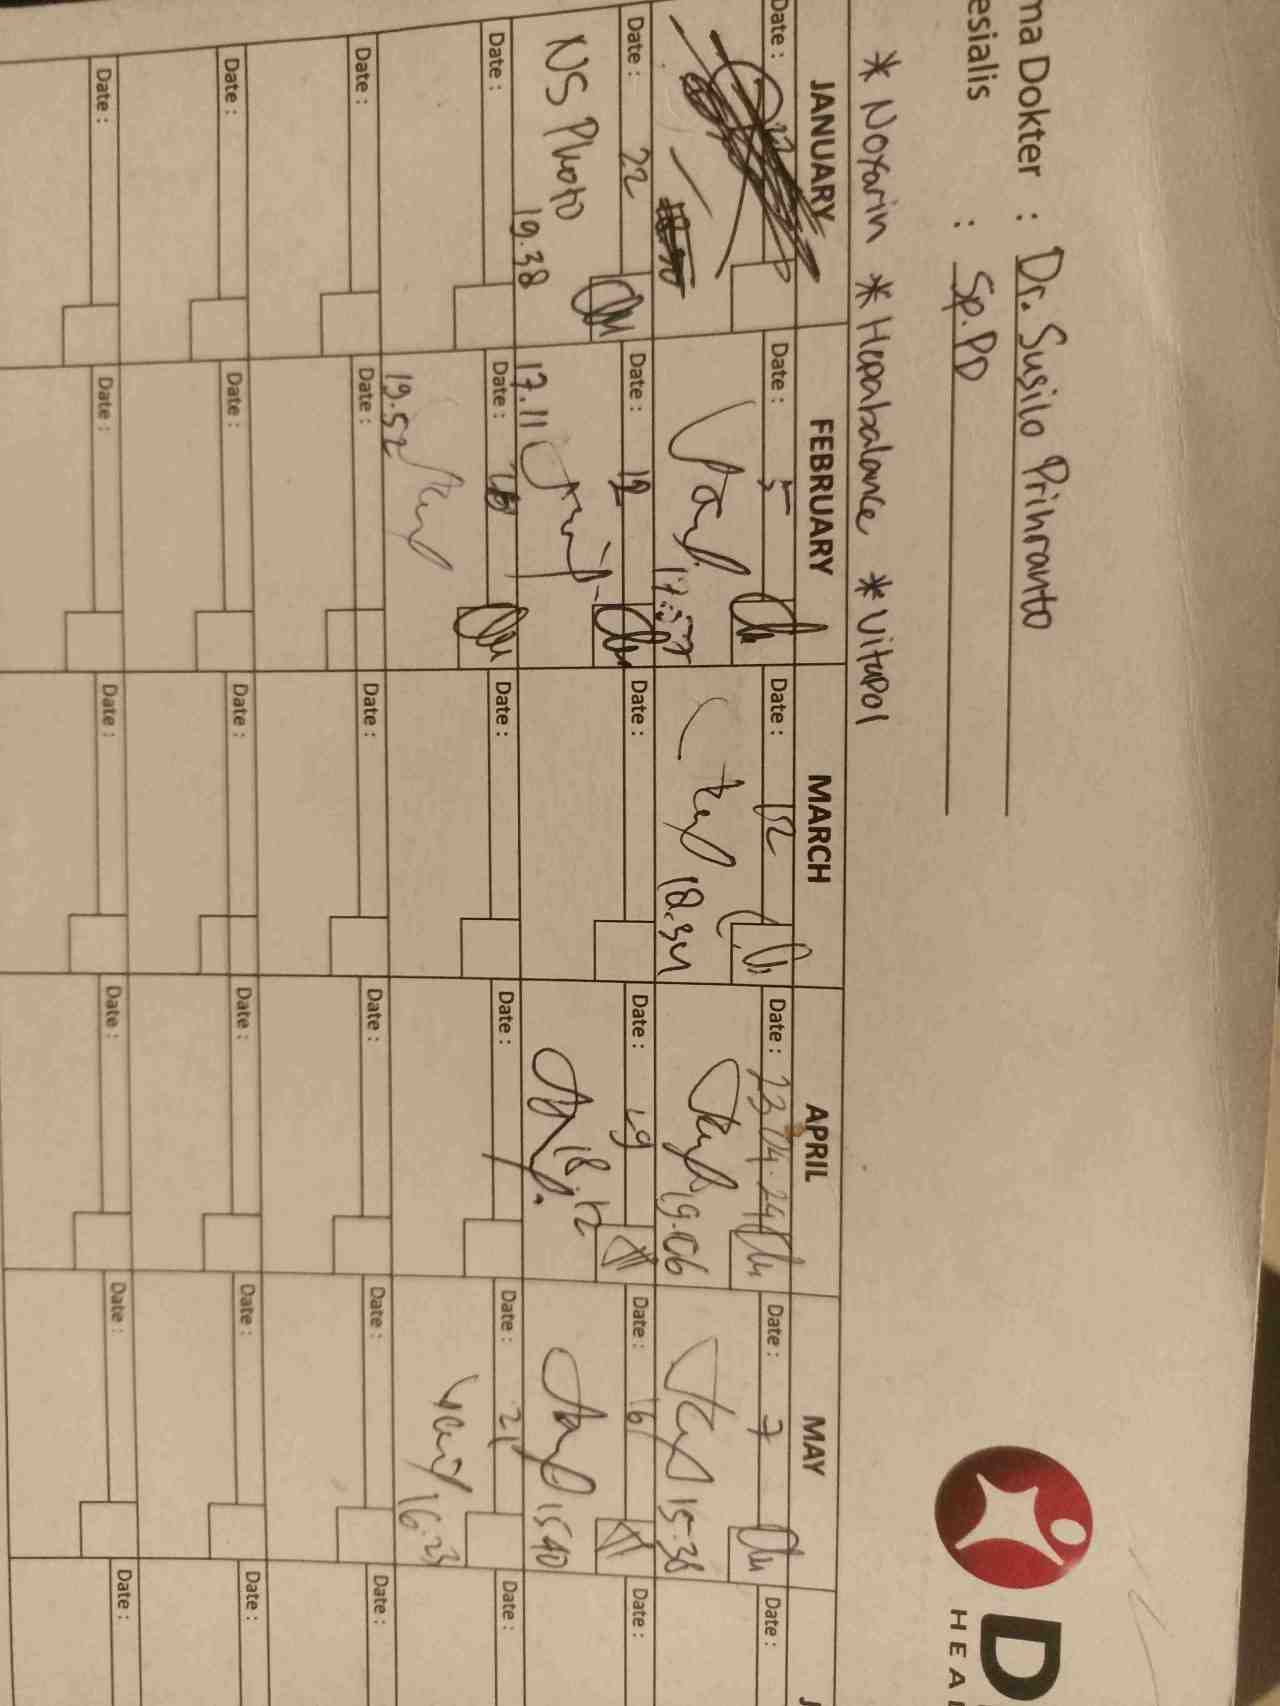 ma Dokter : Dr. Susilo Prihranto
esialis : Sp.PD
D
HEA
* Noxarin * Hepabalance * Vitapol
JANUARY FEBRUARY MARCH APRIL MAY J
Date : Date : 5 Date : 12 Date : 23.04.24 Date : 7 Date :
18.34 19.06 15.38
Date : 22 Date : 12 Date : Date : 19 Date : 16 Date :
NS Photo
19.38 17.11 18.12 15.40
Date : Date : Date : Date : Date : 21 Date :
19.52 16.23
Date : Date : Date : Date : Date : Date :
Date : Date : Date : Date : Date : Date :
Date : Date : Date : Date : Date : Date :